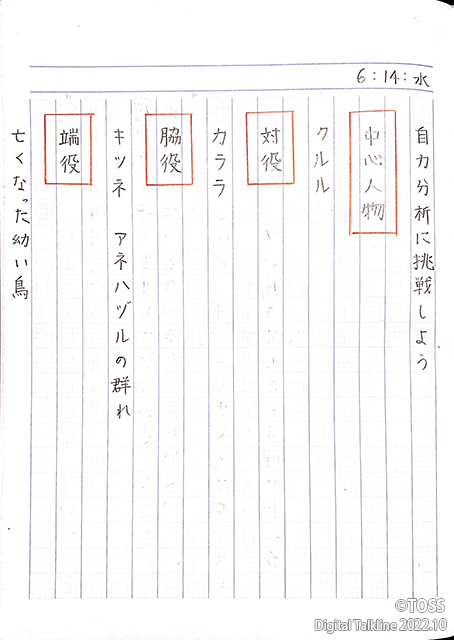 6:14:水
自力分析に挑戦しよう
中心人物
クルル
対役
カララ
脇役
キツネ アネハヅルの群れ
端役
亡くなった幼い鳥
©TOSS
Digital Talkline 2022.10